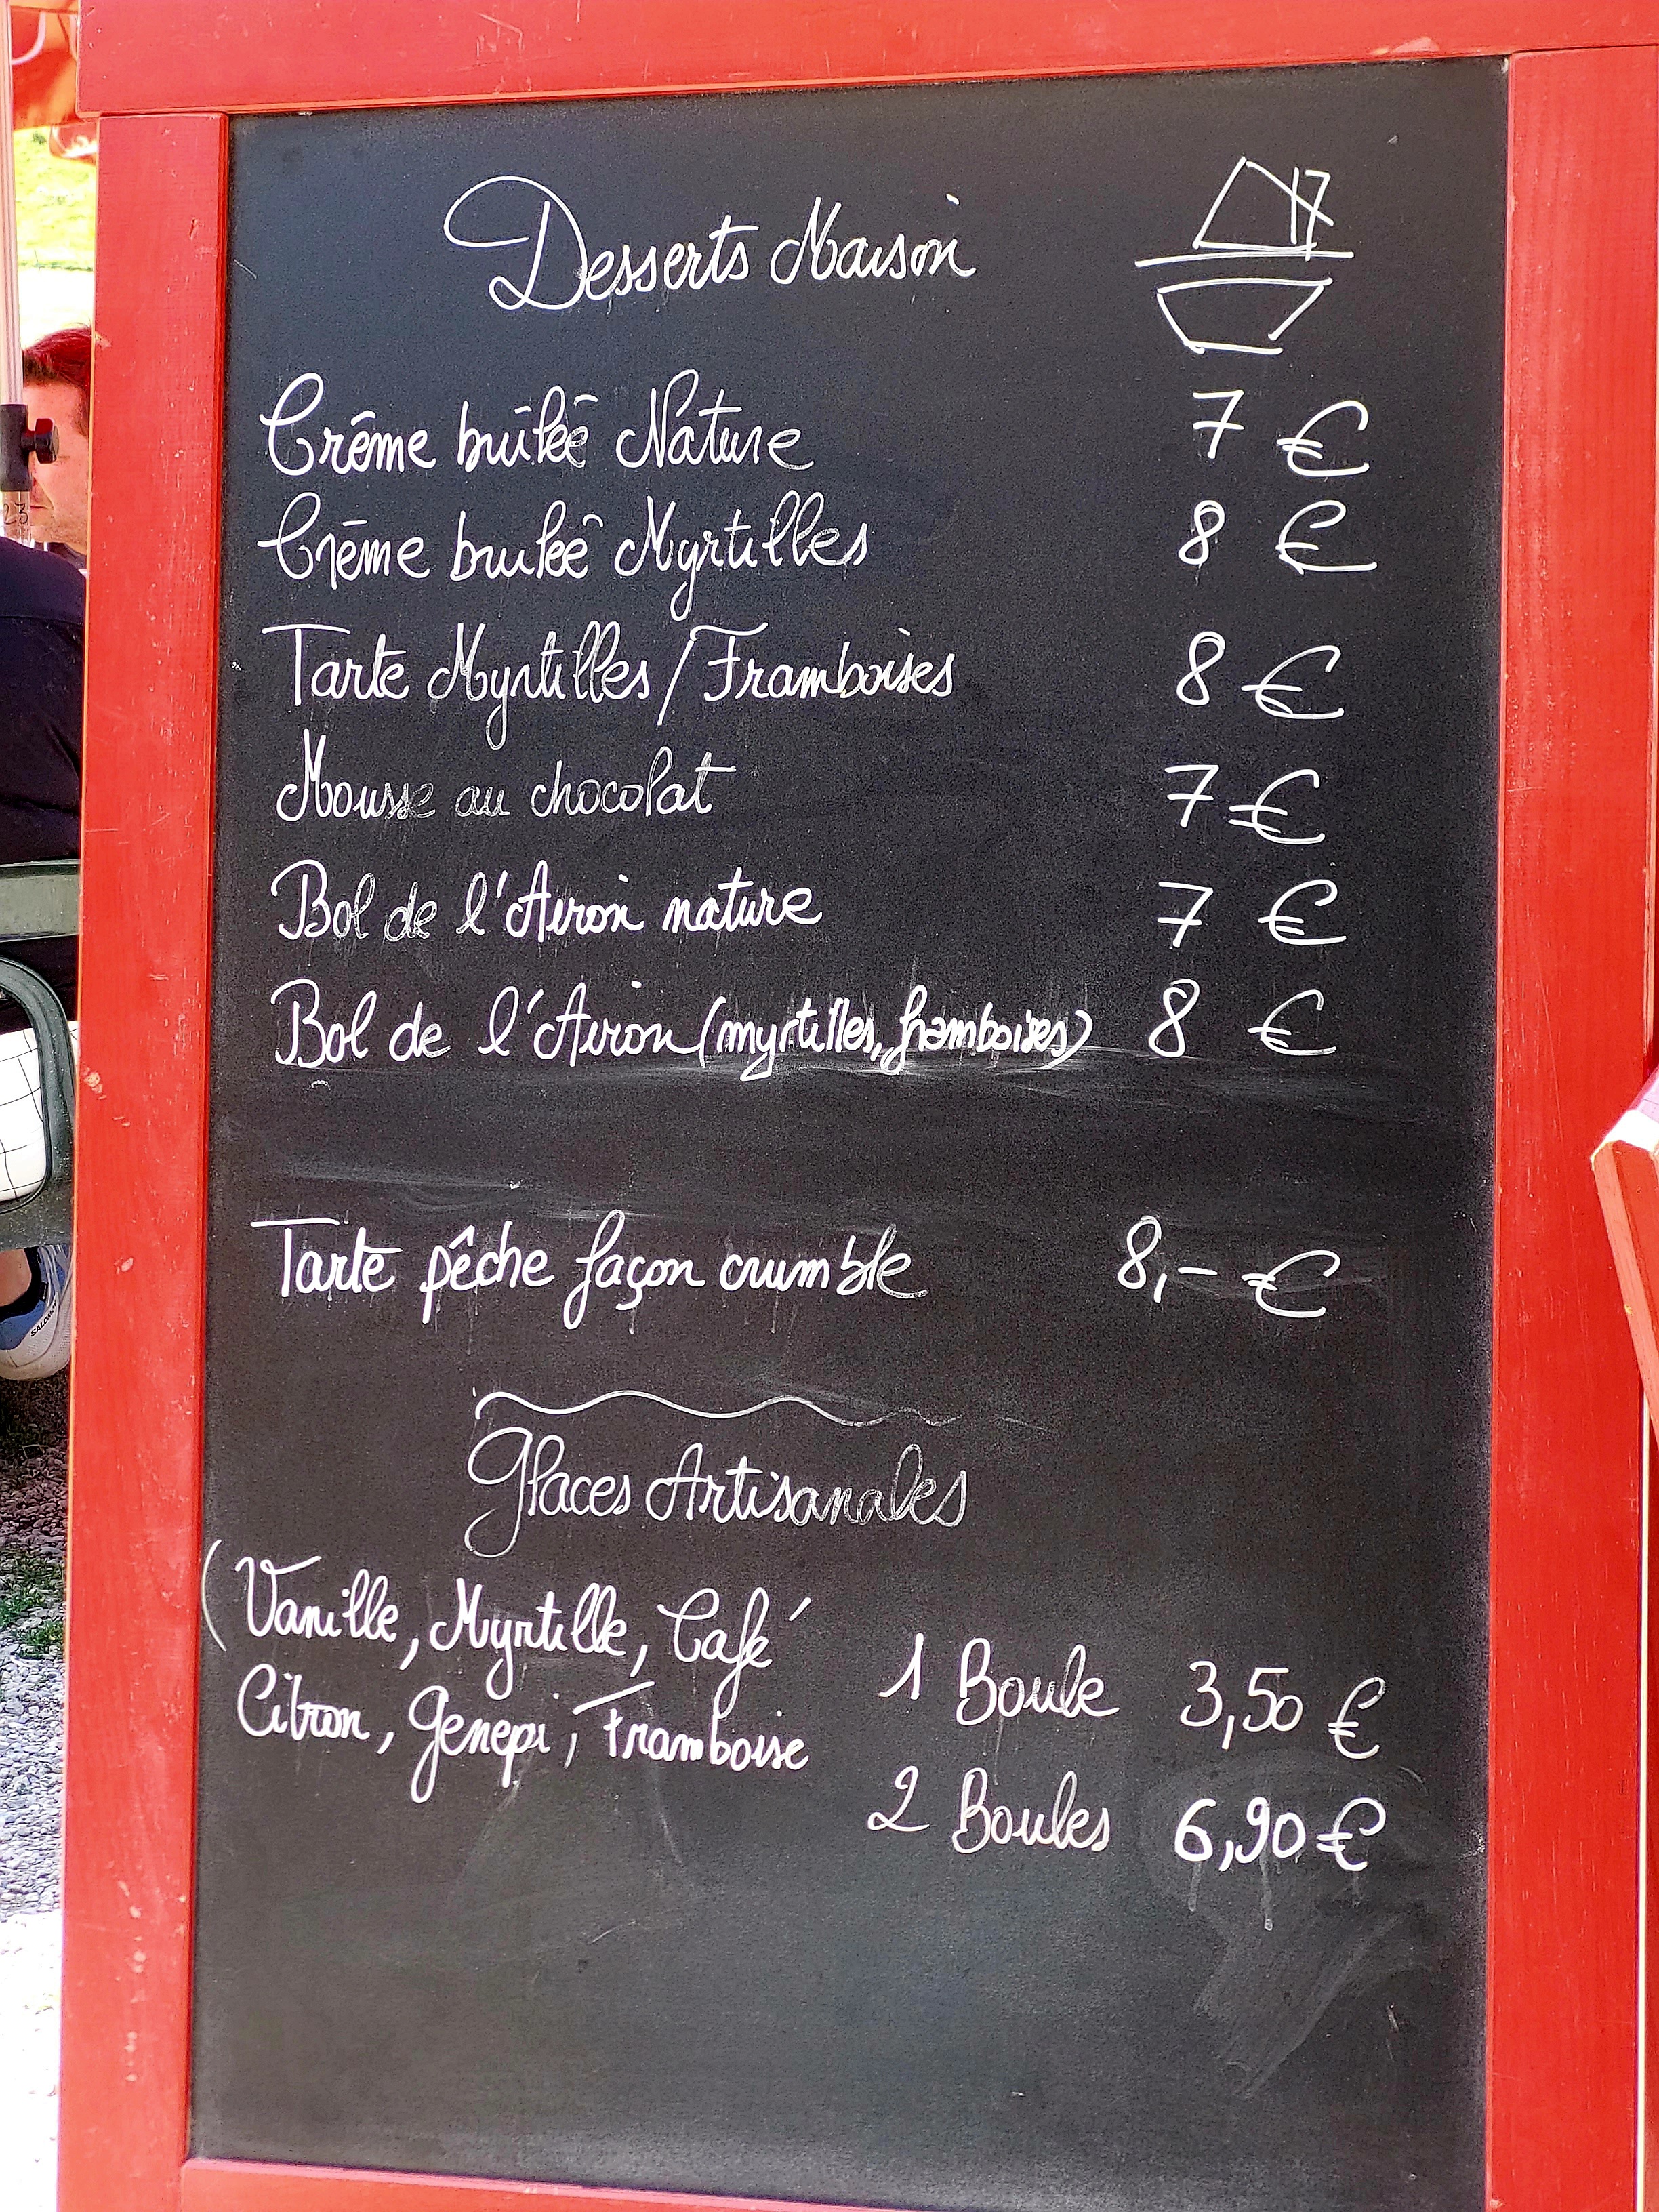 Desserts Maison
Crême brûlée Nature 7 €
Crême brulée Myrtilles 8 €
Tarte Myrtilles/Framboises 8 €
Mousse au chocolat 7 €
Bol de l'Aviron nature 7 €
Bol de l'Aviron (myrtilles, framboises) 8 €
Tarte pêche façon crumble 8,- €
Glaces Artisanales
(Vanille, Myrtille, Café
Citron, Genepi, Framboise
1 Boule 3,50 €
2 Boules 6,90 €
23
SALOMON